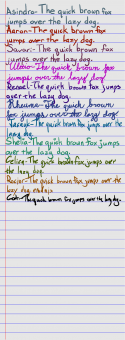 Asindra-The quick brown fox
jumps over the lazy dog.
Aaron-The quick brown fox
jumps over the lazy dog.
Savari-The quick brown fox
jumps over the lazy dog.
The quick brown fox
jumps over the lazy dog
The quick brown fox jumps
over the lazy dog.
Rhaenne-The quick brown
fox jumps over the lazy dog.
The quick brown fox jumps over the
lazy dog.
Sheila-The quick brown fox jumps
over the lazy dog.
The quick brown fox jumps over
the lazy dog.
The quick brown fox jumps over the
lazy dog
The quick brown fox jumps over the lazy dog.